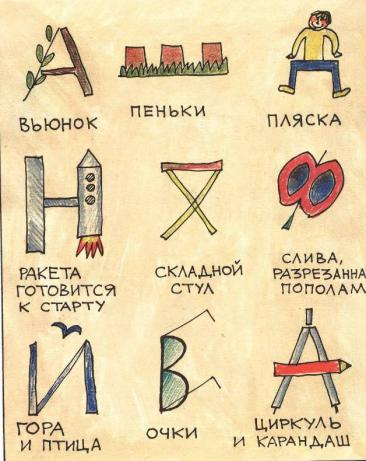 ВЬЮНОК
ПЕНЬКИ
ПЛЯСКА
РАКЕТА
ГОТОВИТСЯ
К СТАРТУ
СКЛАДНОЙ
СТУЛ
СЛИВА,
РАЗРЕЗАННА
ПОПОЛАМ
ГОРА
И ПТИЦА
ОЧКИ
ЦИРКУЛЬ
И КАРАНДАШ